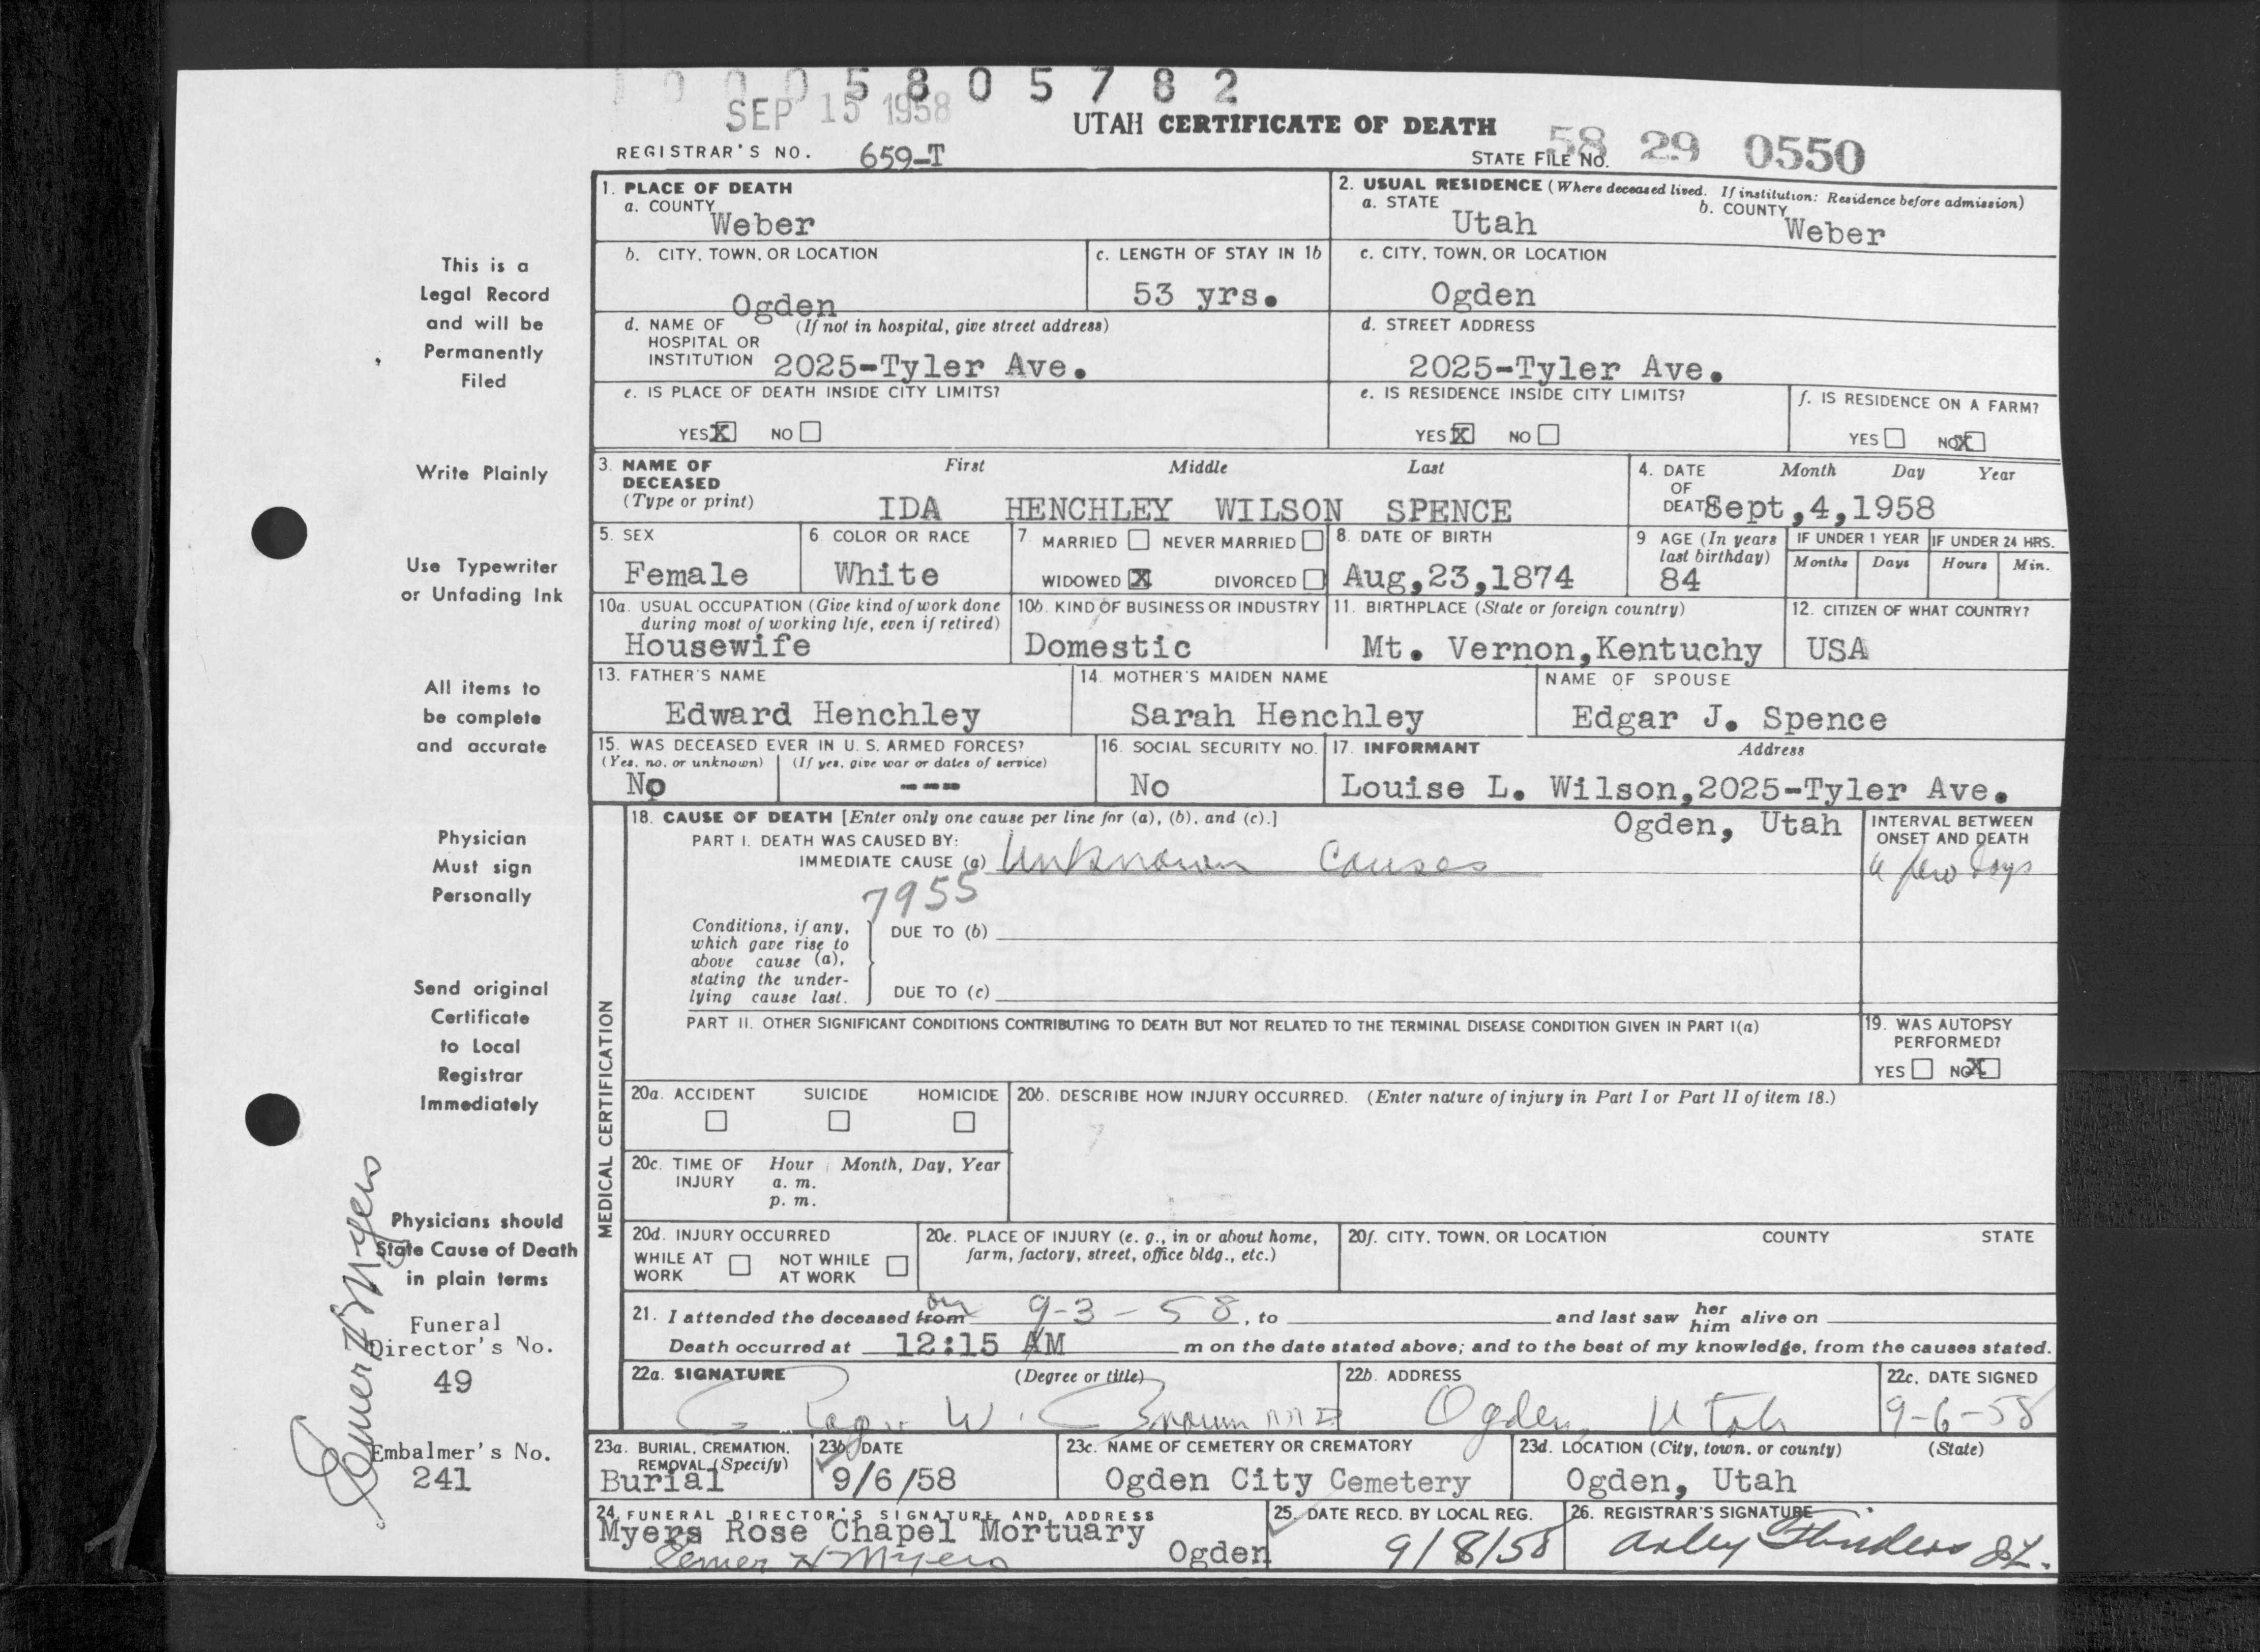 0 0 0 5 8 0 5 7 8 2
SEP 15 1958
UTAH CERTIFICATE OF DEATH
REGISTRAR'S NO. 659-T
STATE FILE NO. 58 29 0550
This is a
Legal Record
and will be
Permanently
Filed
Write Plainly
Use Typewriter
or Unfading Ink
All items to
be complete
and accurate
Physician
Must sign
Personally
Send original
Certificate
to Local
Registrar
Immediately
Physicians should
State Cause of Death
in plain terms
Funeral
Director's No.
49
Embalmer's No.
241
Elmer H Myers
1. PLACE OF DEATH
a. COUNTY
Weber
2. USUAL RESIDENCE (Where deceased lived. If institution: Residence before admission)
a. STATE
Utah
b. COUNTY
Weber
b. CITY, TOWN, OR LOCATION
Ogden
c. LENGTH OF STAY IN 1b
53 yrs.
c. CITY, TOWN, OR LOCATION
Ogden
d. NAME OF (If not in hospital, give street address)
HOSPITAL OR
INSTITUTION 2025-Tyler Ave.
d. STREET ADDRESS
2025-Tyler Ave.
e. IS PLACE OF DEATH INSIDE CITY LIMITS?
YES X NO
e. IS RESIDENCE INSIDE CITY LIMITS?
YES X NO
f. IS RESIDENCE ON A FARM?
YES NO X
3. NAME OF
DECEASED
(Type or print)
First Middle Last
IDA HENCHLEY WILSON SPENCE
4. DATE Month Day Year
OF
DEATH Sept,4,1958
5. SEX
Female
6. COLOR OR RACE
White
7. MARRIED NEVER MARRIED
WIDOWED X DIVORCED
8. DATE OF BIRTH
Aug,23,1874
9 AGE (In years
last birthday)
84
IF UNDER 1 YEAR
Months Days
IF UNDER 24 HRS.
Hours Min.
10a. USUAL OCCUPATION (Give kind of work done
during most of working life, even if retired)
Housewife
10b. KIND OF BUSINESS OR INDUSTRY
Domestic
11. BIRTHPLACE (State or foreign country)
Mt. Vernon,Kentuchy
12. CITIZEN OF WHAT COUNTRY?
USA
13. FATHER'S NAME
Edward Henchley
14. MOTHER'S MAIDEN NAME
Sarah Henchley
NAME OF SPOUSE
Edgar J. Spence
15. WAS DECEASED EVER IN U. S. ARMED FORCES?
(Yes, no, or unknown) (If yes, give war or dates of service)
No ---
16. SOCIAL SECURITY NO.
No
17. INFORMANT Address
Louise L. Wilson,2025-Tyler Ave.
Ogden, Utah
MEDICAL CERTIFICATION
18. CAUSE OF DEATH [Enter only one cause per line for (a), (b), and (c).]
PART I. DEATH WAS CAUSED BY:
IMMEDIATE CAUSE (a) Unknown Causes
7955
INTERVAL BETWEEN
ONSET AND DEATH
a few days
Conditions, if any,
which gave rise to
above cause (a),
stating the under-
lying cause last.
DUE TO (b)
DUE TO (c)
PART II. OTHER SIGNIFICANT CONDITIONS CONTRIBUTING TO DEATH BUT NOT RELATED TO THE TERMINAL DISEASE CONDITION GIVEN IN PART I(a)
19. WAS AUTOPSY
PERFORMED?
YES NO X
20a. ACCIDENT SUICIDE HOMICIDE
20b. DESCRIBE HOW INJURY OCCURRED. (Enter nature of injury in Part I or Part II of item 18.)
20c. TIME OF Hour Month, Day, Year
INJURY a. m.
p. m.
20d. INJURY OCCURRED
WHILE AT NOT WHILE
WORK AT WORK
20e. PLACE OF INJURY (e. g., in or about home,
farm, factory, street, office bldg., etc.)
20f. CITY, TOWN, OR LOCATION COUNTY STATE
21. I attended the deceased from on 9-3-58, to and last saw her him alive on
Death occurred at 12:15 AM m on the date stated above; and to the best of my knowledge, from the causes stated.
22a. SIGNATURE (Degree or title)
Roger W. Brown MD
22b. ADDRESS
Ogden, Utah
22c. DATE SIGNED
9-6-58
23a. BURIAL, CREMATION,
REMOVAL (Specify)
Burial
23b DATE
9/6/58
23c. NAME OF CEMETERY OR CREMATORY
Ogden City Cemetery
23d. LOCATION (City, town, or county) (State)
Ogden, Utah
24. FUNERAL DIRECTOR'S SIGNATURE AND ADDRESS
Myers Rose Chapel Mortuary
Elmer H Myers Ogden
25. DATE RECD. BY LOCAL REG.
9/8/58
26. REGISTRAR'S SIGNATURE